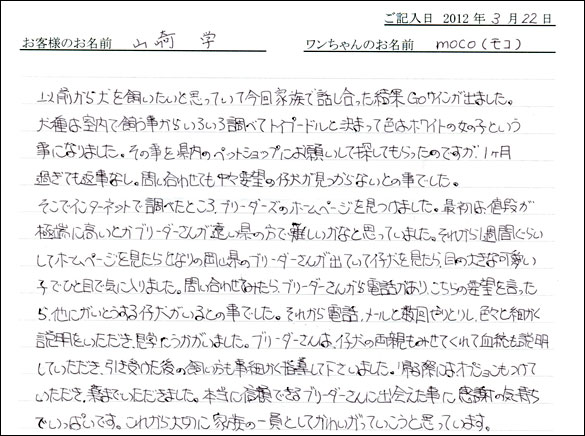 ご記入日 2012年3月22日
お客様のお名前 山崎 学 ワンちゃんのお名前 moco(モコ)
以前から犬を飼いたいと思っていて今回家族で話し合った結果Goサインが出ました。
犬種は室内で飼う事からいろいろ調べてトイプードルと決まって色はホワイトの女の子という
事になりました。その事を県内のペットショップにお願いして探してもらったのですが、1ヶ月
過ぎても返事なし。問い合わせても中々要望の仔犬が見つからないとの事でした。
そこでインターネットで調べたところ、ブリーダーズのホームページを見つけました。最初は、値段が
極端に高いとかブリーダーさんが遠い県の方で難しいかなと思っていました。それから1週間ぐらい
してホームページを見たらとなりの岡山県のブリーダーさんが出ていて仔犬を見たら、目の大きな可愛い
子でひと目で気に入りました。問い合わせてみたら、ブリーダーさんから電話があり、こちらの要望を言った
ら、他にがいとうする仔犬がいるとの事でした。それから電話、メールと数回やりとりし、色々と細かく
説明をいただき、見学にうかがいました。ブリーダーさんは、仔犬の両親もみせてくれて血統も説明
していただき、引き受けた後の飼い方も事細かく指導して下さいました。帰る際にはオプションもつけて
いただき、喜ばせていただきました。本当に信頼できるブリーダーさんに出会えた事に感謝の気持ち
でいっぱいです。これから大切に家族の一員としてかわいがっていこうと思っています。